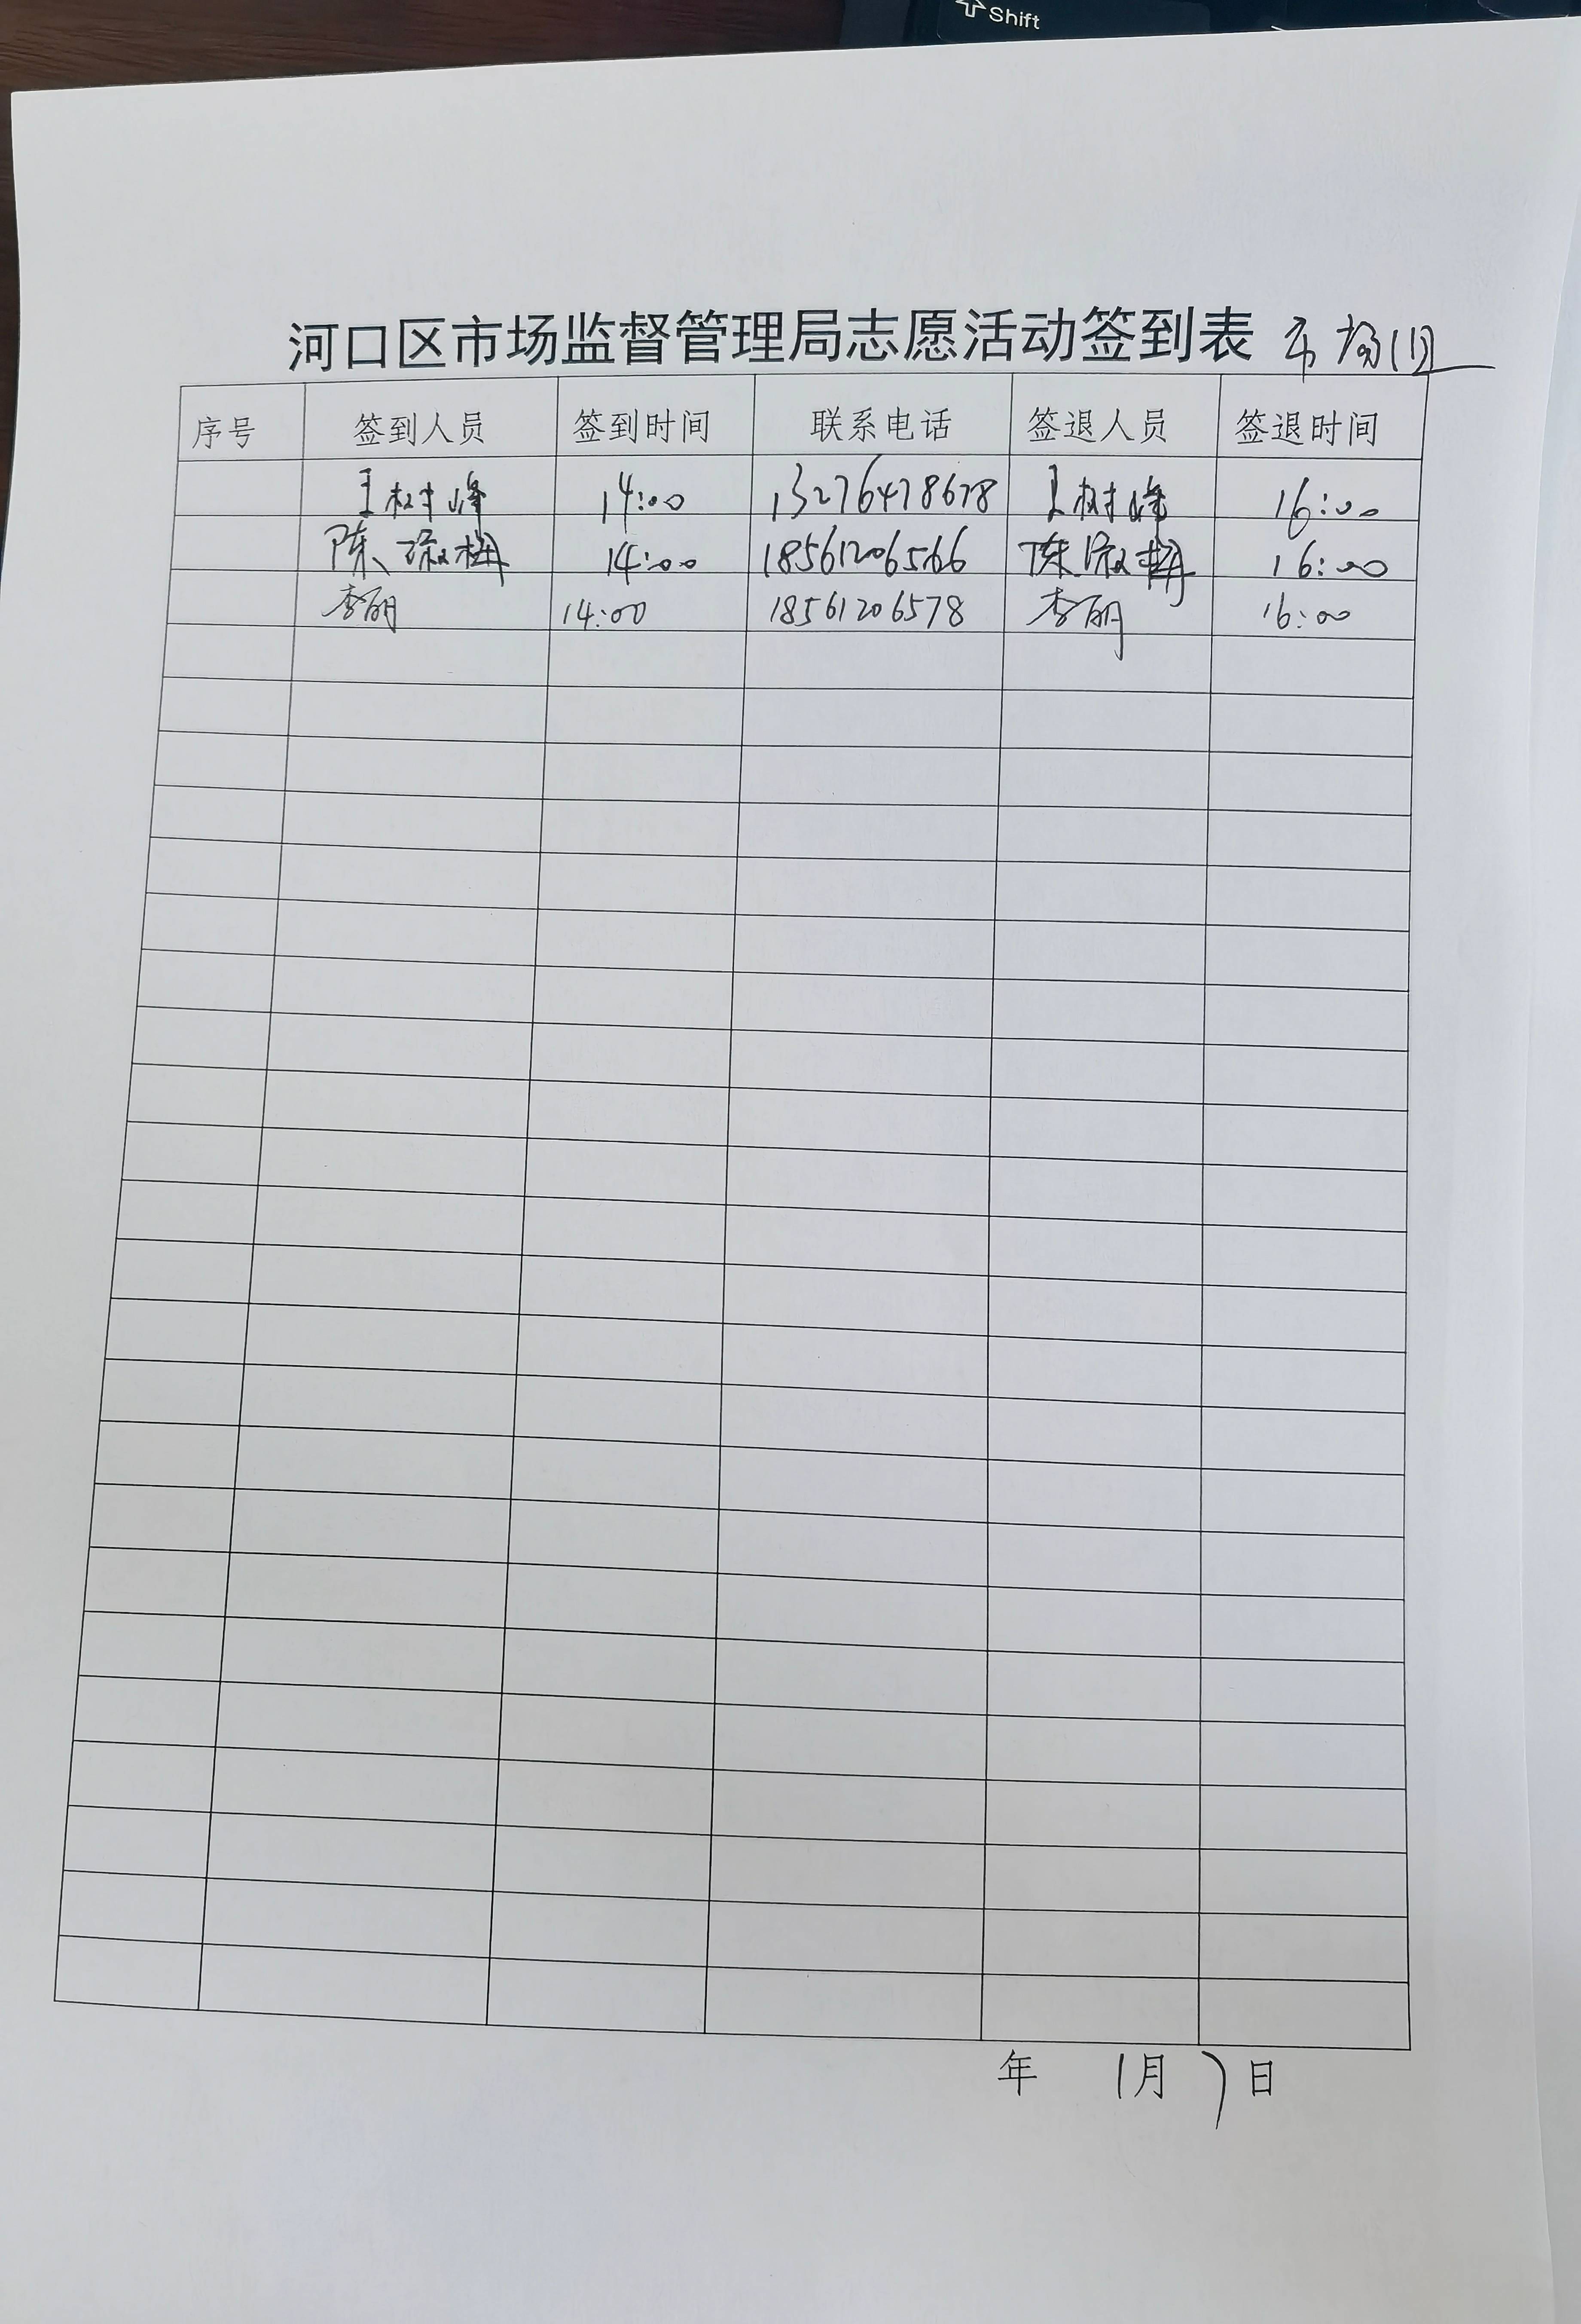 Shift
河口区市场监督管理局志愿活动签到表 市场
序号 签到人员 签到时间 联系电话 签退人员 签退时间
王树峰 14:00 13276478678 王树峰 16:00
陈淑梅 14:00 18561206566 陈淑梅 16:00
李丽 14:00 18561206578 李丽 16:00
年 1月7日